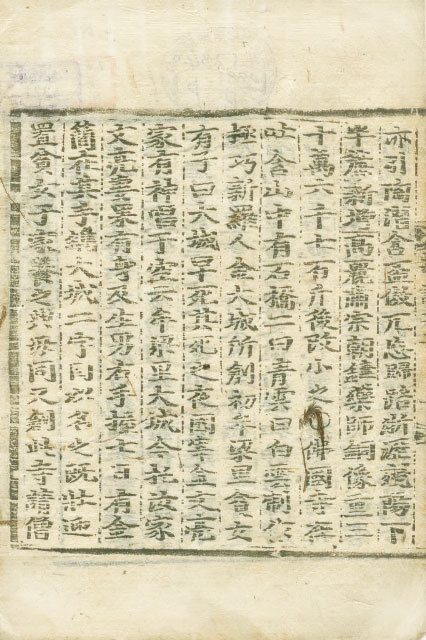 亦引陶潛含傲兀忘歸路漸殘陽下
半簷新增高麗肅宗朝鑄藥師銅像重三
十萬六千七百斤後改小之○佛國寺在
吐含山中有石橋二曰青雲曰白雲制作
極巧新羅人金大城所創初牟梁里貧女
有子曰大城早死其死之夜國宰金文亮
家有神唱于空云牟梁里大城今托汝家
文亮妻果有身及生男右手握七日有金
簡在其手鐫大城二字因以名之旣壯迎
置貧女于家養之與母同又創此寺請僧